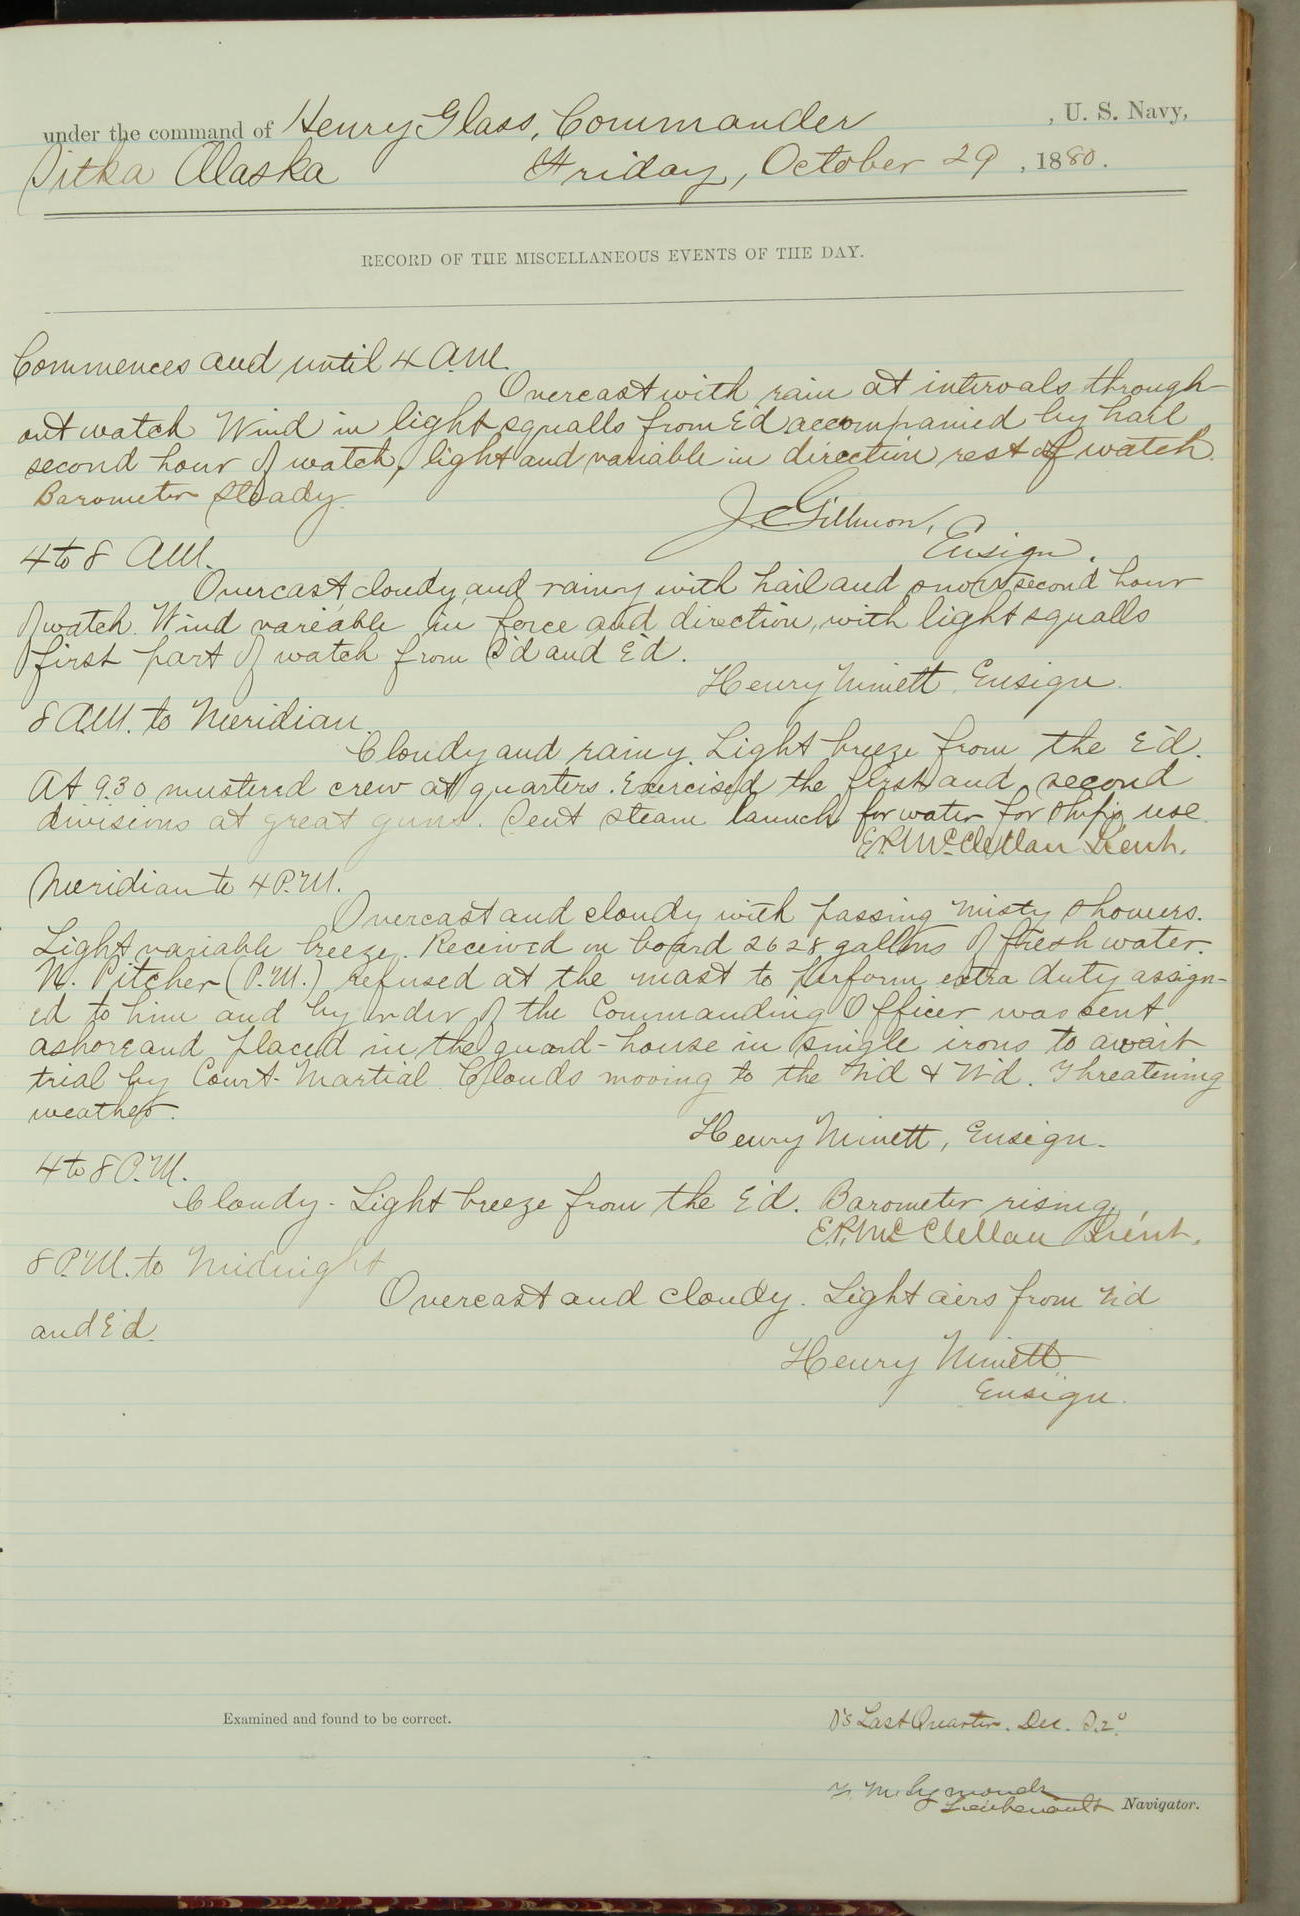 under the command of Henry Glass, Commander , U. S. Navy,
Sitka Alaska Friday, October 29 , 1880.
RECORD OF THE MISCELLANEOUS EVENTS OF THE DAY.
Commences and until 4 A.M.
Overcast with rain at intervals through-
out watch Wind in light squalls from E'd accompanied by hail
second hour of watch, light and variable in direction rest of watch.
Barometer steady.
J C Gillmore,
Ensign.
4 to 8 A.M.
Overcast, cloudy and rainy with hail and snow second hour
of watch. Wind variable in force and direction, with light squalls
first part of watch from S'd and E'd.
Henry Minett, Ensign.
8 A.M. to Meridian.
Cloudy and rainy. Light breeze from the E'd.
At 9.30 mustered crew at quarters. Exercised the first and second
divisions at great guns. Sent steam launch for water for ship's use.
E.P. McClellan Lieut.
Meridian to 4 P.M.
Overcast and cloudy with passing misty showers.
Light variable breeze. Received on board 2628 gallons of fresh water.
N. Pitcher (P.M.) refused at the mast to perform extra duty assign-
ed to him and by order of the Commanding Officer was sent
ashore and placed in the guard-house in single irons to await
trial by Court-Martial. Clouds moving to the N'd & W'd. Threatening
weather.
Henry Minett, Ensign.
4 to 8 P.M.
Cloudy - Light breeze from the E'd. Barometer rising.
E.P. McClellan Lieut.
8 P.M. to Midnight
Overcast and cloudy. Light airs from N'd
and E'd.
Henry Minett
Ensign.
Examined and found to be correct.
Last Quarter. Dec.
F. M. Symonds
Lieutenant Navigator.